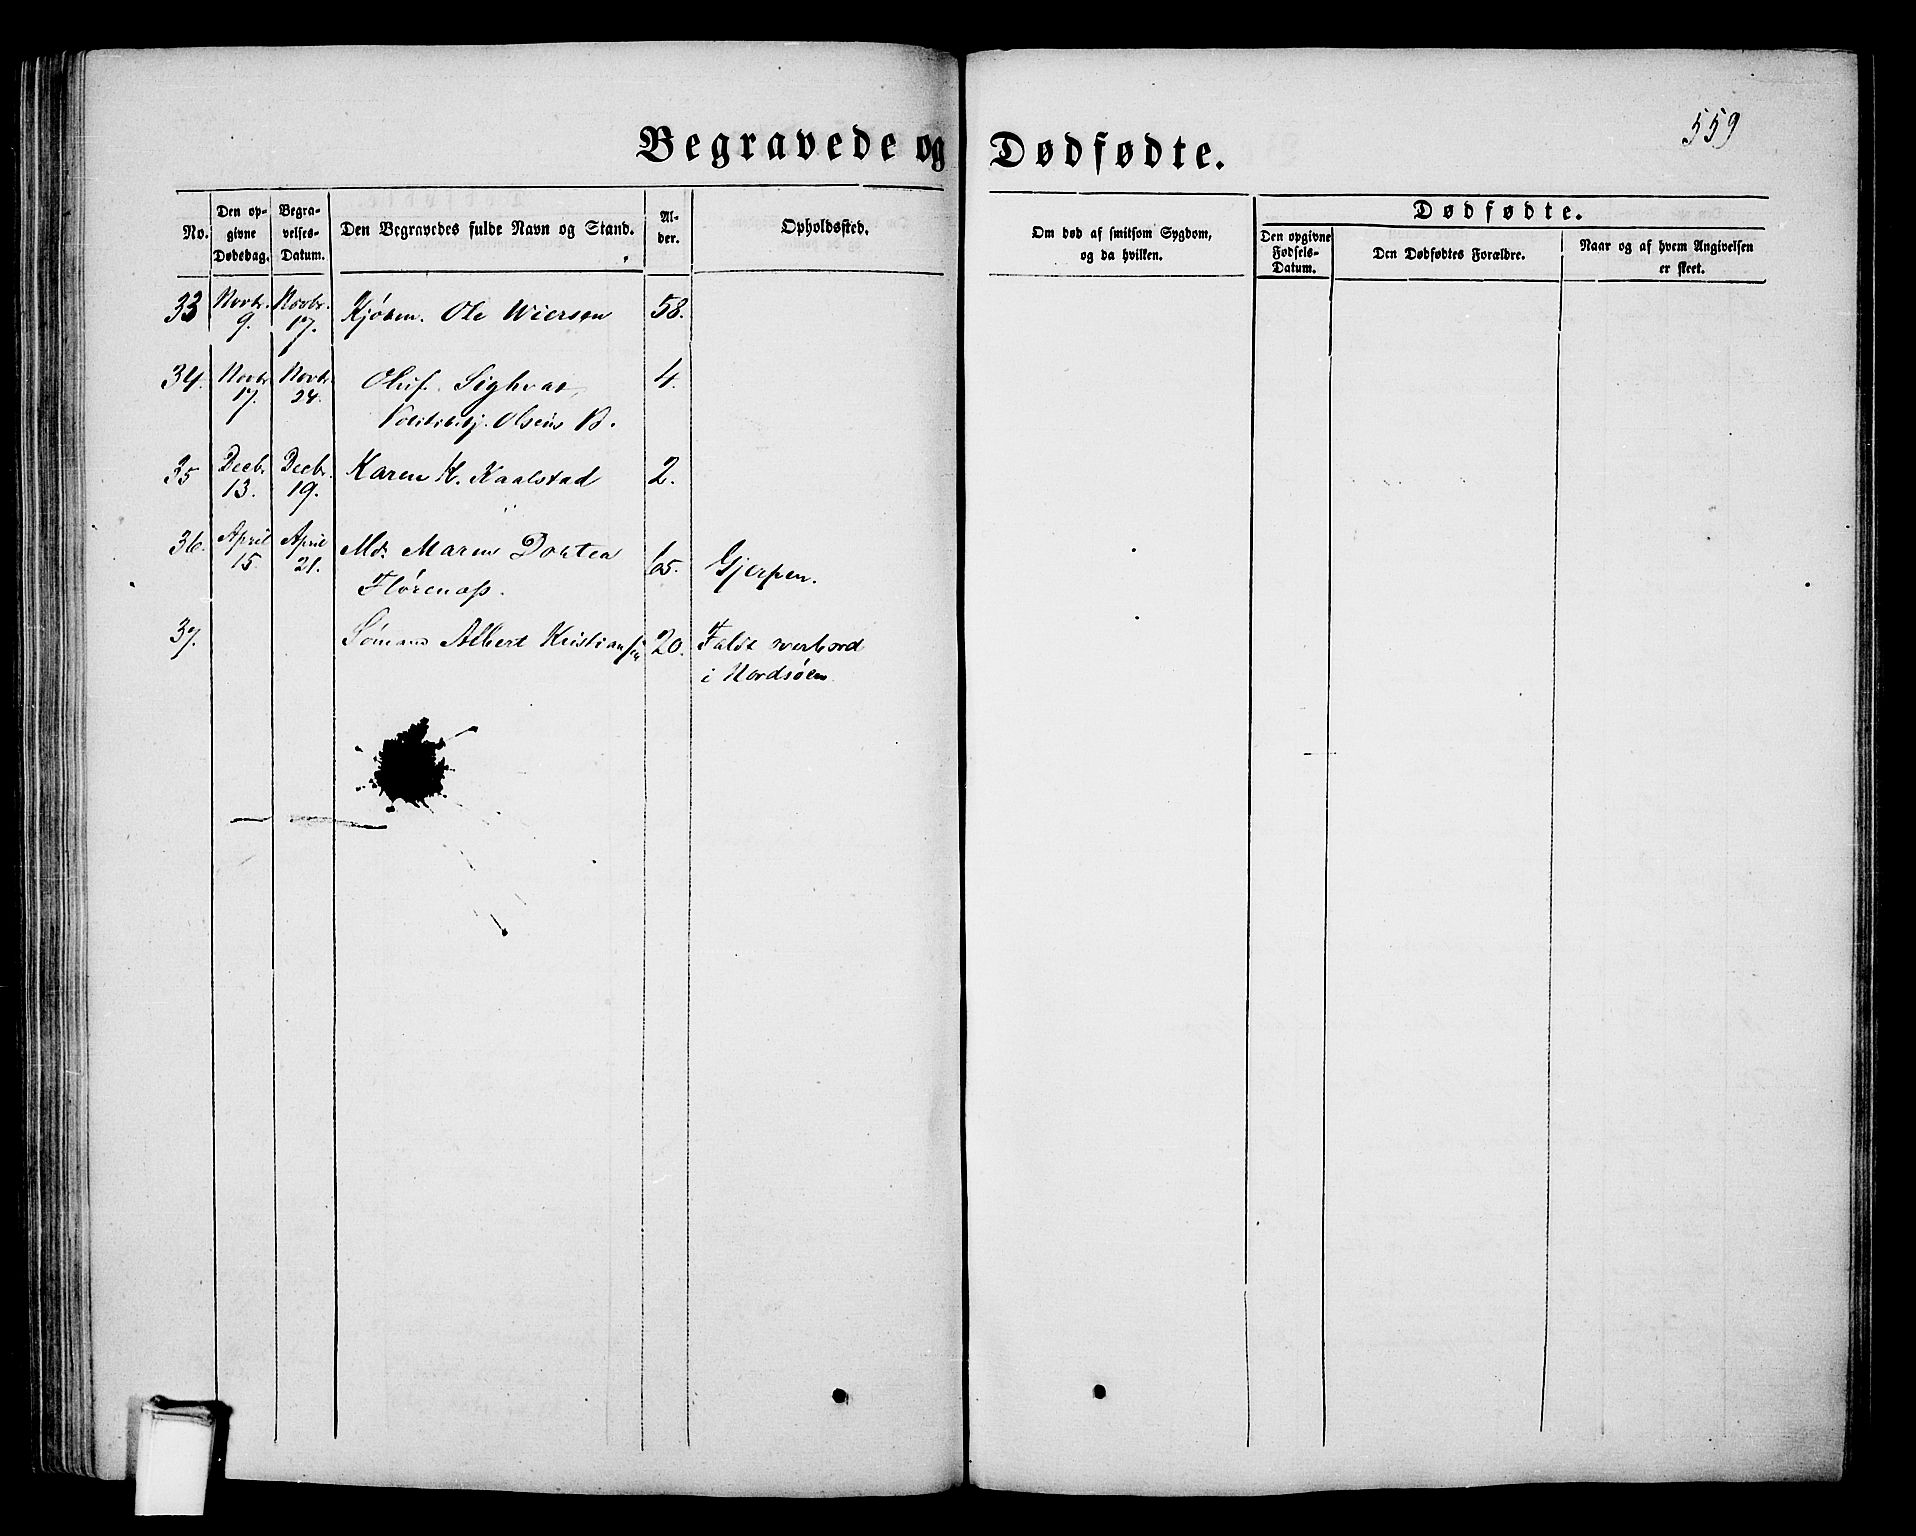 559
Begravede og Dødfødte.
No.
Den op-
givne
Dødsdag.
Begra-
velses-
Datum.
Den Begravedes fulde Navn og Stand.
Al-
der.
Opholdssted.
Om død af smitsom Sygdom,
og da hvilken.
Dødfødte.
Den opgivne
Fødsels-
Datum.
Den Dødfødtes Forældre.
Naar og af hvem Angivelsen
er skeet.
33 Novbr. 9. Novbr. 17. Kjøbm. Ole Wiersen 58.
34. Novbr 17. Novbr 24. Oluf Sighvat, 4.
Olsens B.
35 Decbr 13. Decbr. 19. Karen K. Kaalstad 2.
36. April 15. April 21. Md. Maren Dortea 65. Gjerpen.
Florenæss.
37. Sømand Albert Kristiansen 20. Faldt overbord
i Nordsøen